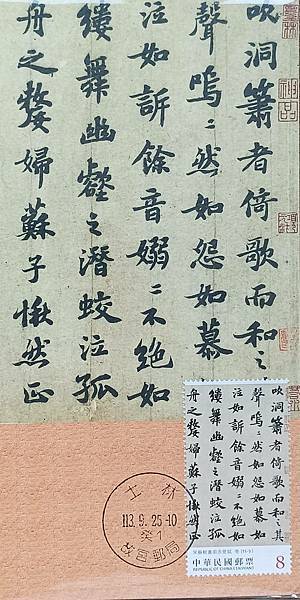 吹洞簫者倚歌而和之
聲嗚〻然如怨如慕
泣如訴餘音嫋〻不絕如
縷舞幽壑之潛蛟泣孤
舟之嫠婦蘇子愀然正
吹洞簫者倚歌而和之其
聲嗚〻然如怨如慕如
泣如訴餘音嫋〻不絕如
縷舞幽壑之潛蛟泣孤
舟之嫠婦蘇子愀然正
宋蘇軾書前赤壁賦 卷
中華民國郵票
REPUBLIC OF CHINA (TAIWAN)
8
士林
113.9.25.-10
癸1
故宮郵局